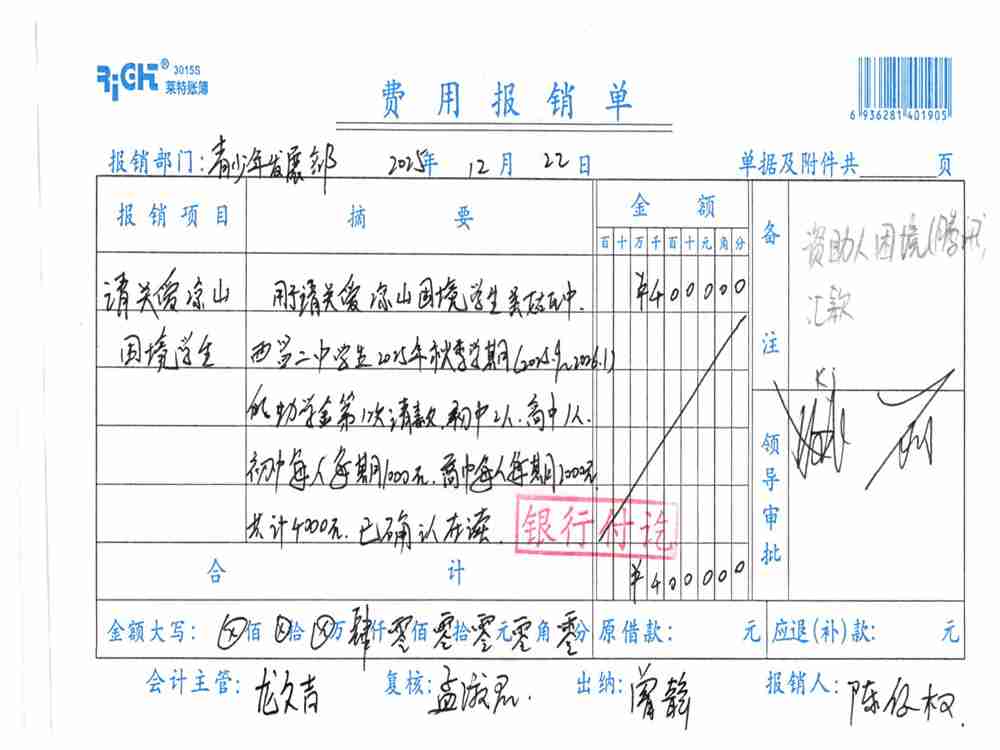 RiGHT® 3015S
莱特账簿
费用报销单
6 936281 401905
报销部门:青少年发展部 2025年 12月 22日 单据及附件共 页
报销项目 摘要 金额 备注
百十万千百十元角分
请关爱凉山 用于请关爱凉山困境学生美姑民中、 ¥400000
困境学生 西昌二中学生2025年秋季学期(2025.9~2026.1)
的助学金第1次请款,初中2人、高中1人.
初中每人每期1000元,高中每人每期2000元,
共计4000元.已确认在读.
资助人困境(腾讯)
汇款
领导审批
银行付讫
合计 ¥400000
金额大写: ⓧ佰ⓧ拾ⓧ万肆仟零佰零拾零元零角零分 原借款: 元 应退(补)款: 元
会计主管:龙久吉 复核:孟淑君. 出纳:曾静 报销人:陈仅权.